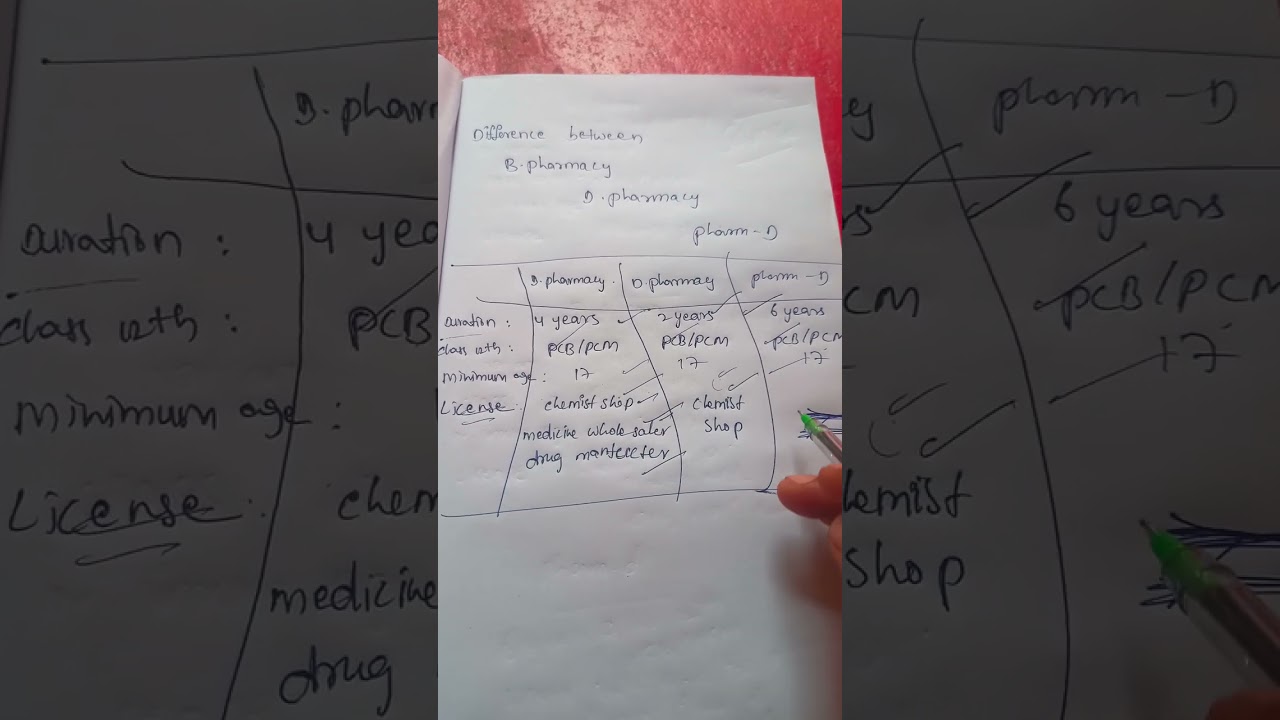 Difference between
B.pharmacy
D.pharmacy
pharm-D
B.pharmacy. D.pharmacy pharm-D
duration : 4 years 2 years 6 years
class 12th : PCB/PCM PCB/PCM PCB/PCM
minimum age : 17 17 17
License : chemist shop chemist
shop
medicine whole saler
drug